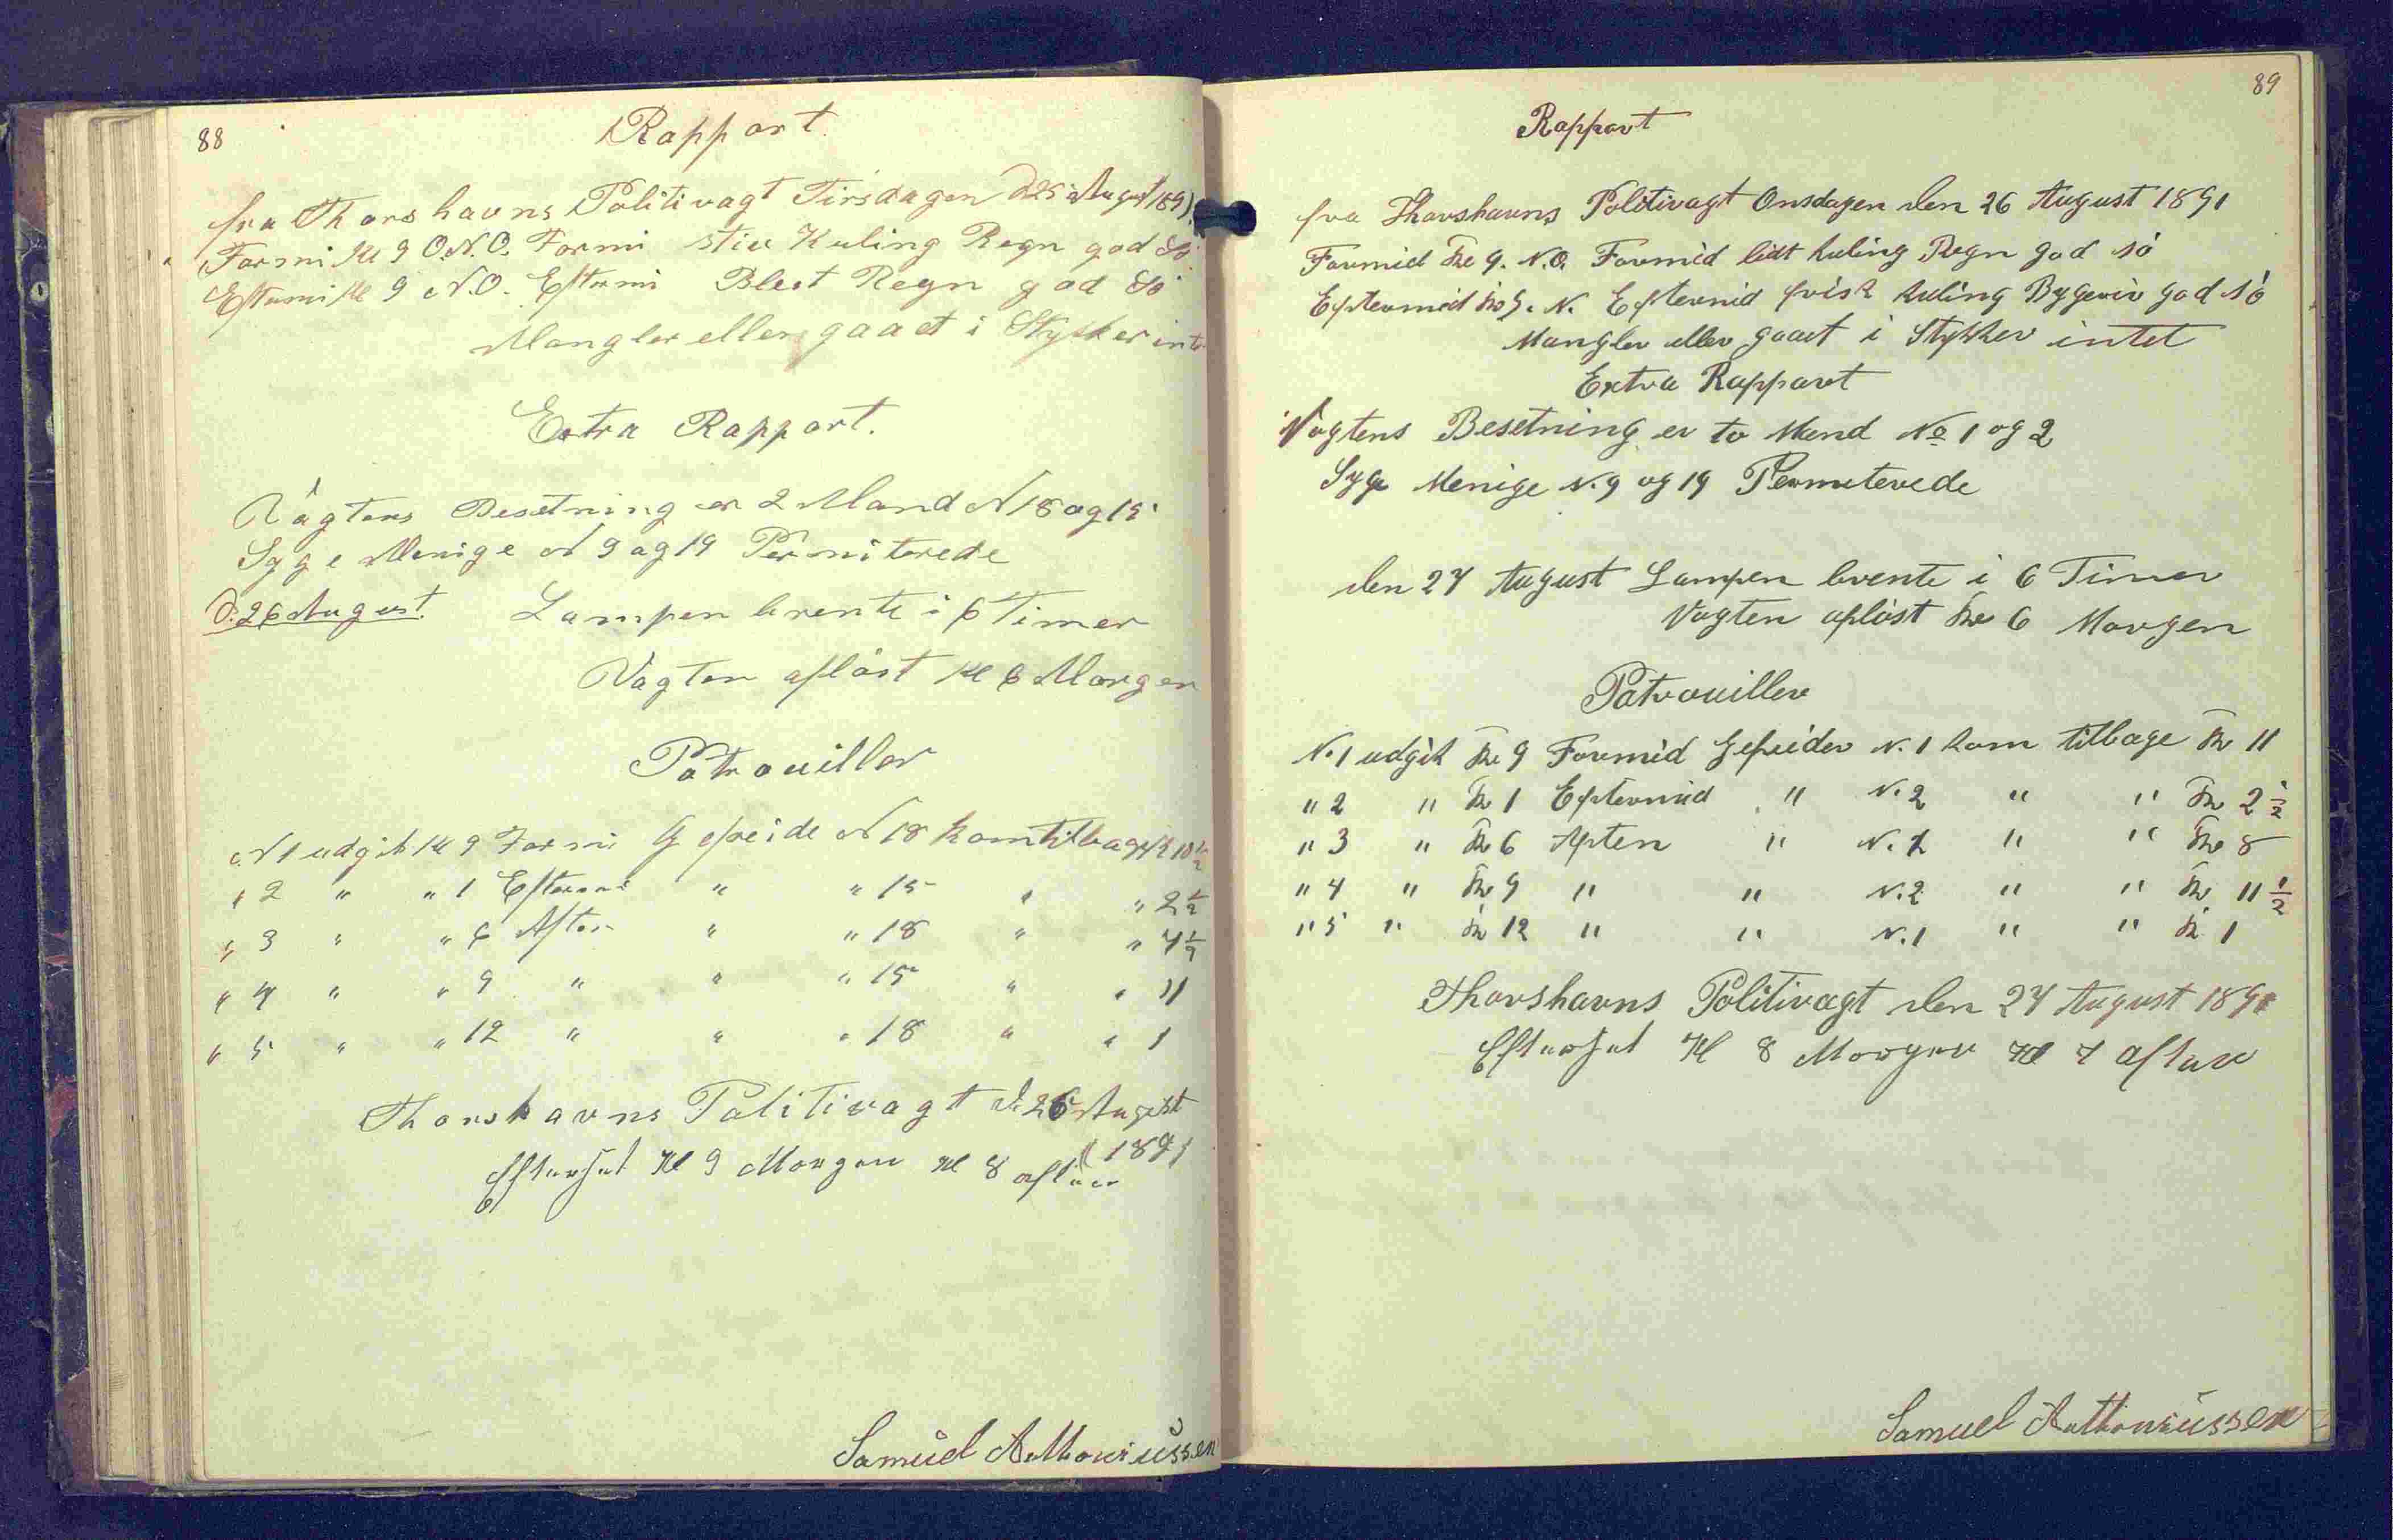 88
Rapport.
fra Thorshavns Politivagt Tirsdagen D 25 August 1891
Formi Kl 9 O.N.O. Formi stiv Kuling Regn god Sö
Eftermi Kl 9 N.O. Eftermi Blest Regn god Sö
Mangler eller gaaet i Stykker int
Extra Rapport.
Vagtens Besetning er 2 Mand N 18 og 15
Syge Menige N 9 og 19 Permiterede
D. 26 August. Lampen brente i 6 Timer
Vagten aflöst Kl 6 Morgen
Patrouiller
N 1 udgik Kl 9 Formi Gefreide N 18 kom tilbage Kl 10 1/2
" 2 " " 1 Eftermi " " 15 " " 2 1/2
" 3 " " 6 Aften " " 18 " " 7 1/2
" 4 " " 9 " " " 15 " " 11
" 5 " " 12 " " " 18 " " 1
Thorshavns Politivagt d. 26 August
1891
Efterset Kl 9 Morgen Kl 8 aften
Samuel Anthoniussen
89
Rapport
fra Thorshavns Politivagt Onsdagen den 26 August 1891
Formid Kl 9. N.O. Formid lidt kuling Regn god sö
Eftermid Kl 9. N. Eftermid frisk kuling Bygeriv god sö
Mangler eller gaaet i Stykker intet
Extra Rapport
Vagtens Besetning er to Mend No 1 og 2
Syge Menige N. 9 og 19 Permeterede
den 27 August Lampen brente i 6 Timer
Vagten aflöst Kl 6 Morgen
Patrouiller
N. 1 udgik Kl 9 Formid Gefreider N. 1 kom tilbage Kl 11
" 2 " Kl 1 Eftermid " N. 2 " " Kl 2 1/2
" 3 " Kl 6 Aften " N. 1 " " Kl 8
" 4 " Kl 9 " " N. 2 " " Kl 11 1/2
" 5 " Kl 12 " " N. 1 " " Kl 1
Thorshavns Politivagt den 27 August 1891
Efterset Kl 8 Morgen Kl 7 aften
Samuel Anthoniussen